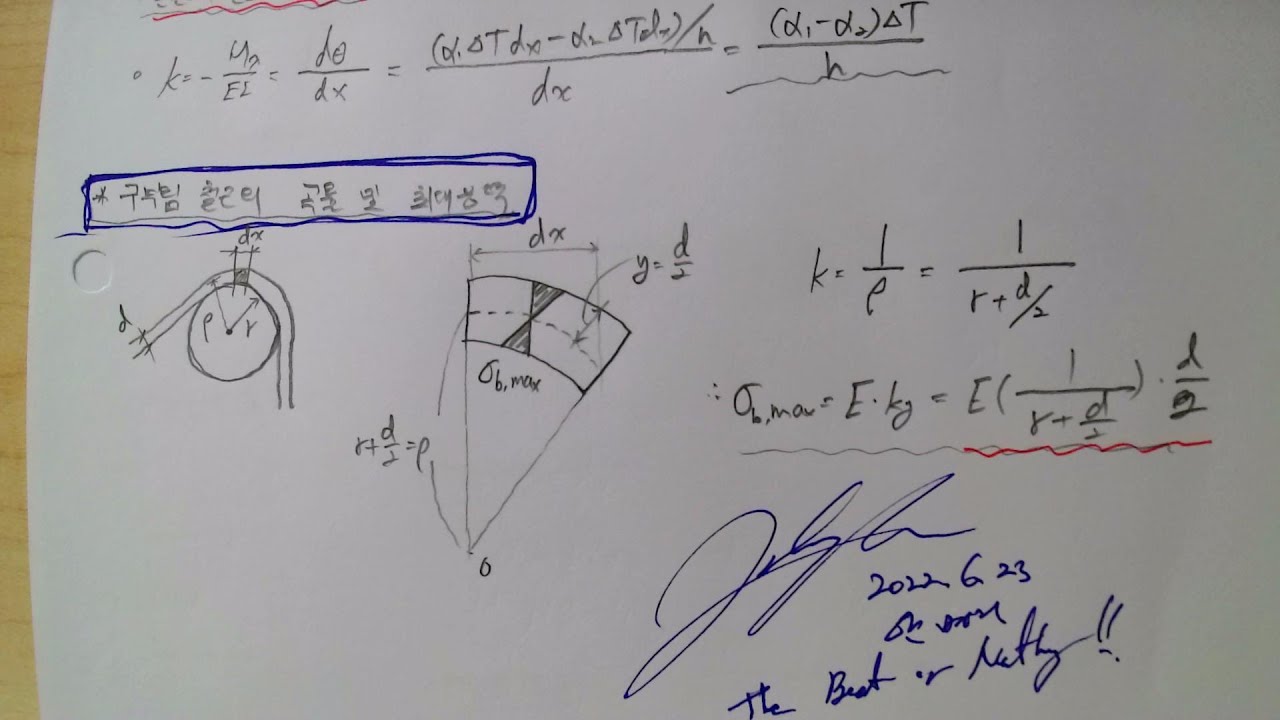 k = - M₂/EI = dθ/dx = (α₁ΔTdx - α₂ΔTdx)/h / dx = (α₁-α₂)ΔT / h
* 구부림 철근의 곡률 및 최대응력
dx
d
ρ
r
dx
y = d/2
σb,max
r + d/2 = ρ
0
k = 1/ρ = 1/(r + d/2)
∴ σb,max = E·ky = E(1/(r + d/2))·d/2
2022.6.23
The Best or Nothing!!